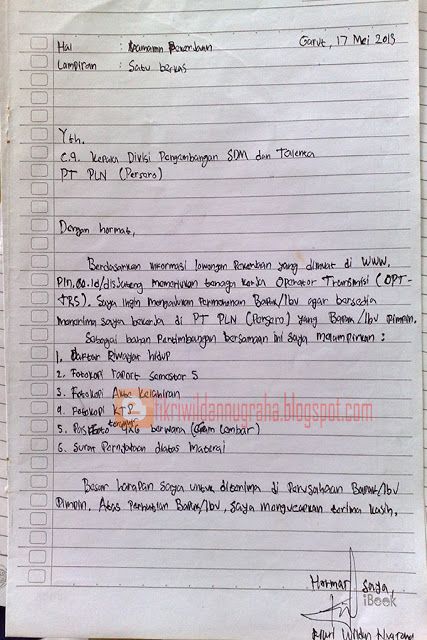 Hal : Lamaran Pekerjaan Garut, 17 Mei 2013
Lampiran : Satu berkas
Yth.
c.q. Kepala Divisi Pengembangan SDM dan Talenta
PT PLN (Persero)
Dengan hormat,
Berdasarkan informasi lowongan Pekerjaan yang dimuat di WWW.
Pln.co.id/disjateng memerlukan tenaga kerja Operator Transmisi (OPT-
TRS). Saya ingin mengajukan Permohonan Bapak/Ibu agar bersedia
menerima saya bekerja di PT PLN (Persero) yang Bapak/Ibu Pimpin.
Sebagai bahan Pertimbangan bersamaan ini saya melampirkan :
1. Daftar Riwayat hidup
2. Fotokopi raport Semester 5
3. Fotokopi Akte Kelahiran
4. Fotokopi KTP
hkriwildannugraha.blogspot.com
5. Pas Foto terbaru 4x6 berwarna (Enam Lembar)
6. Surat Pernyataan diatas Materai
Besar harapan saya untuk diterima di Perusahaan Bapak/Ibu
Pimpin. Atas Perhatian Bapak/Ibu, saya mengucapkan terima kasih.
Hormat saya,
iBook
Wildan Nugraha